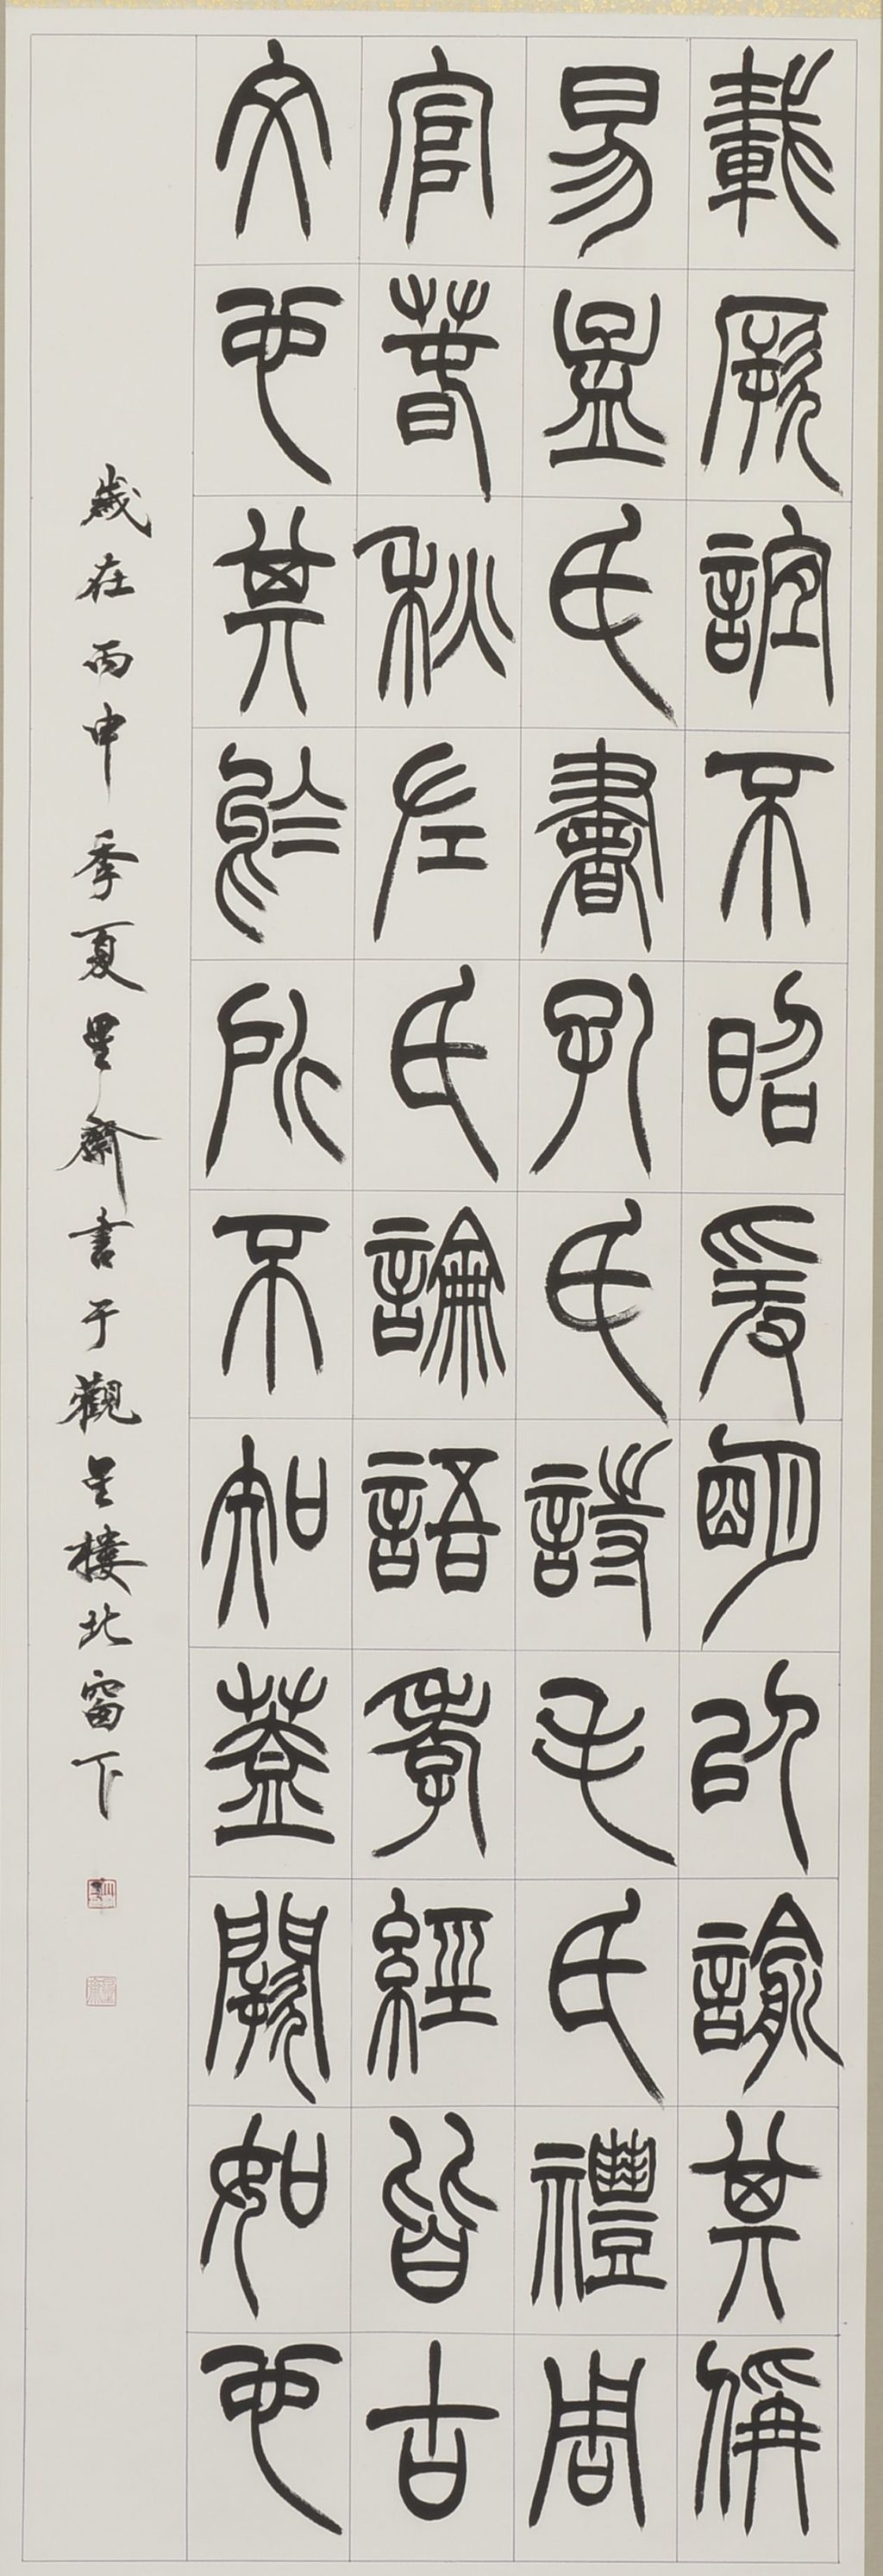 載厥誼不昭爰朙以諭其偁
易孟氏書孔氏詩毛氏禮周
官春秋左氏論語孝經皆古
文也其於所不知蓋闕如也
歲在丙申季夏齋書于觀星樓北窗下